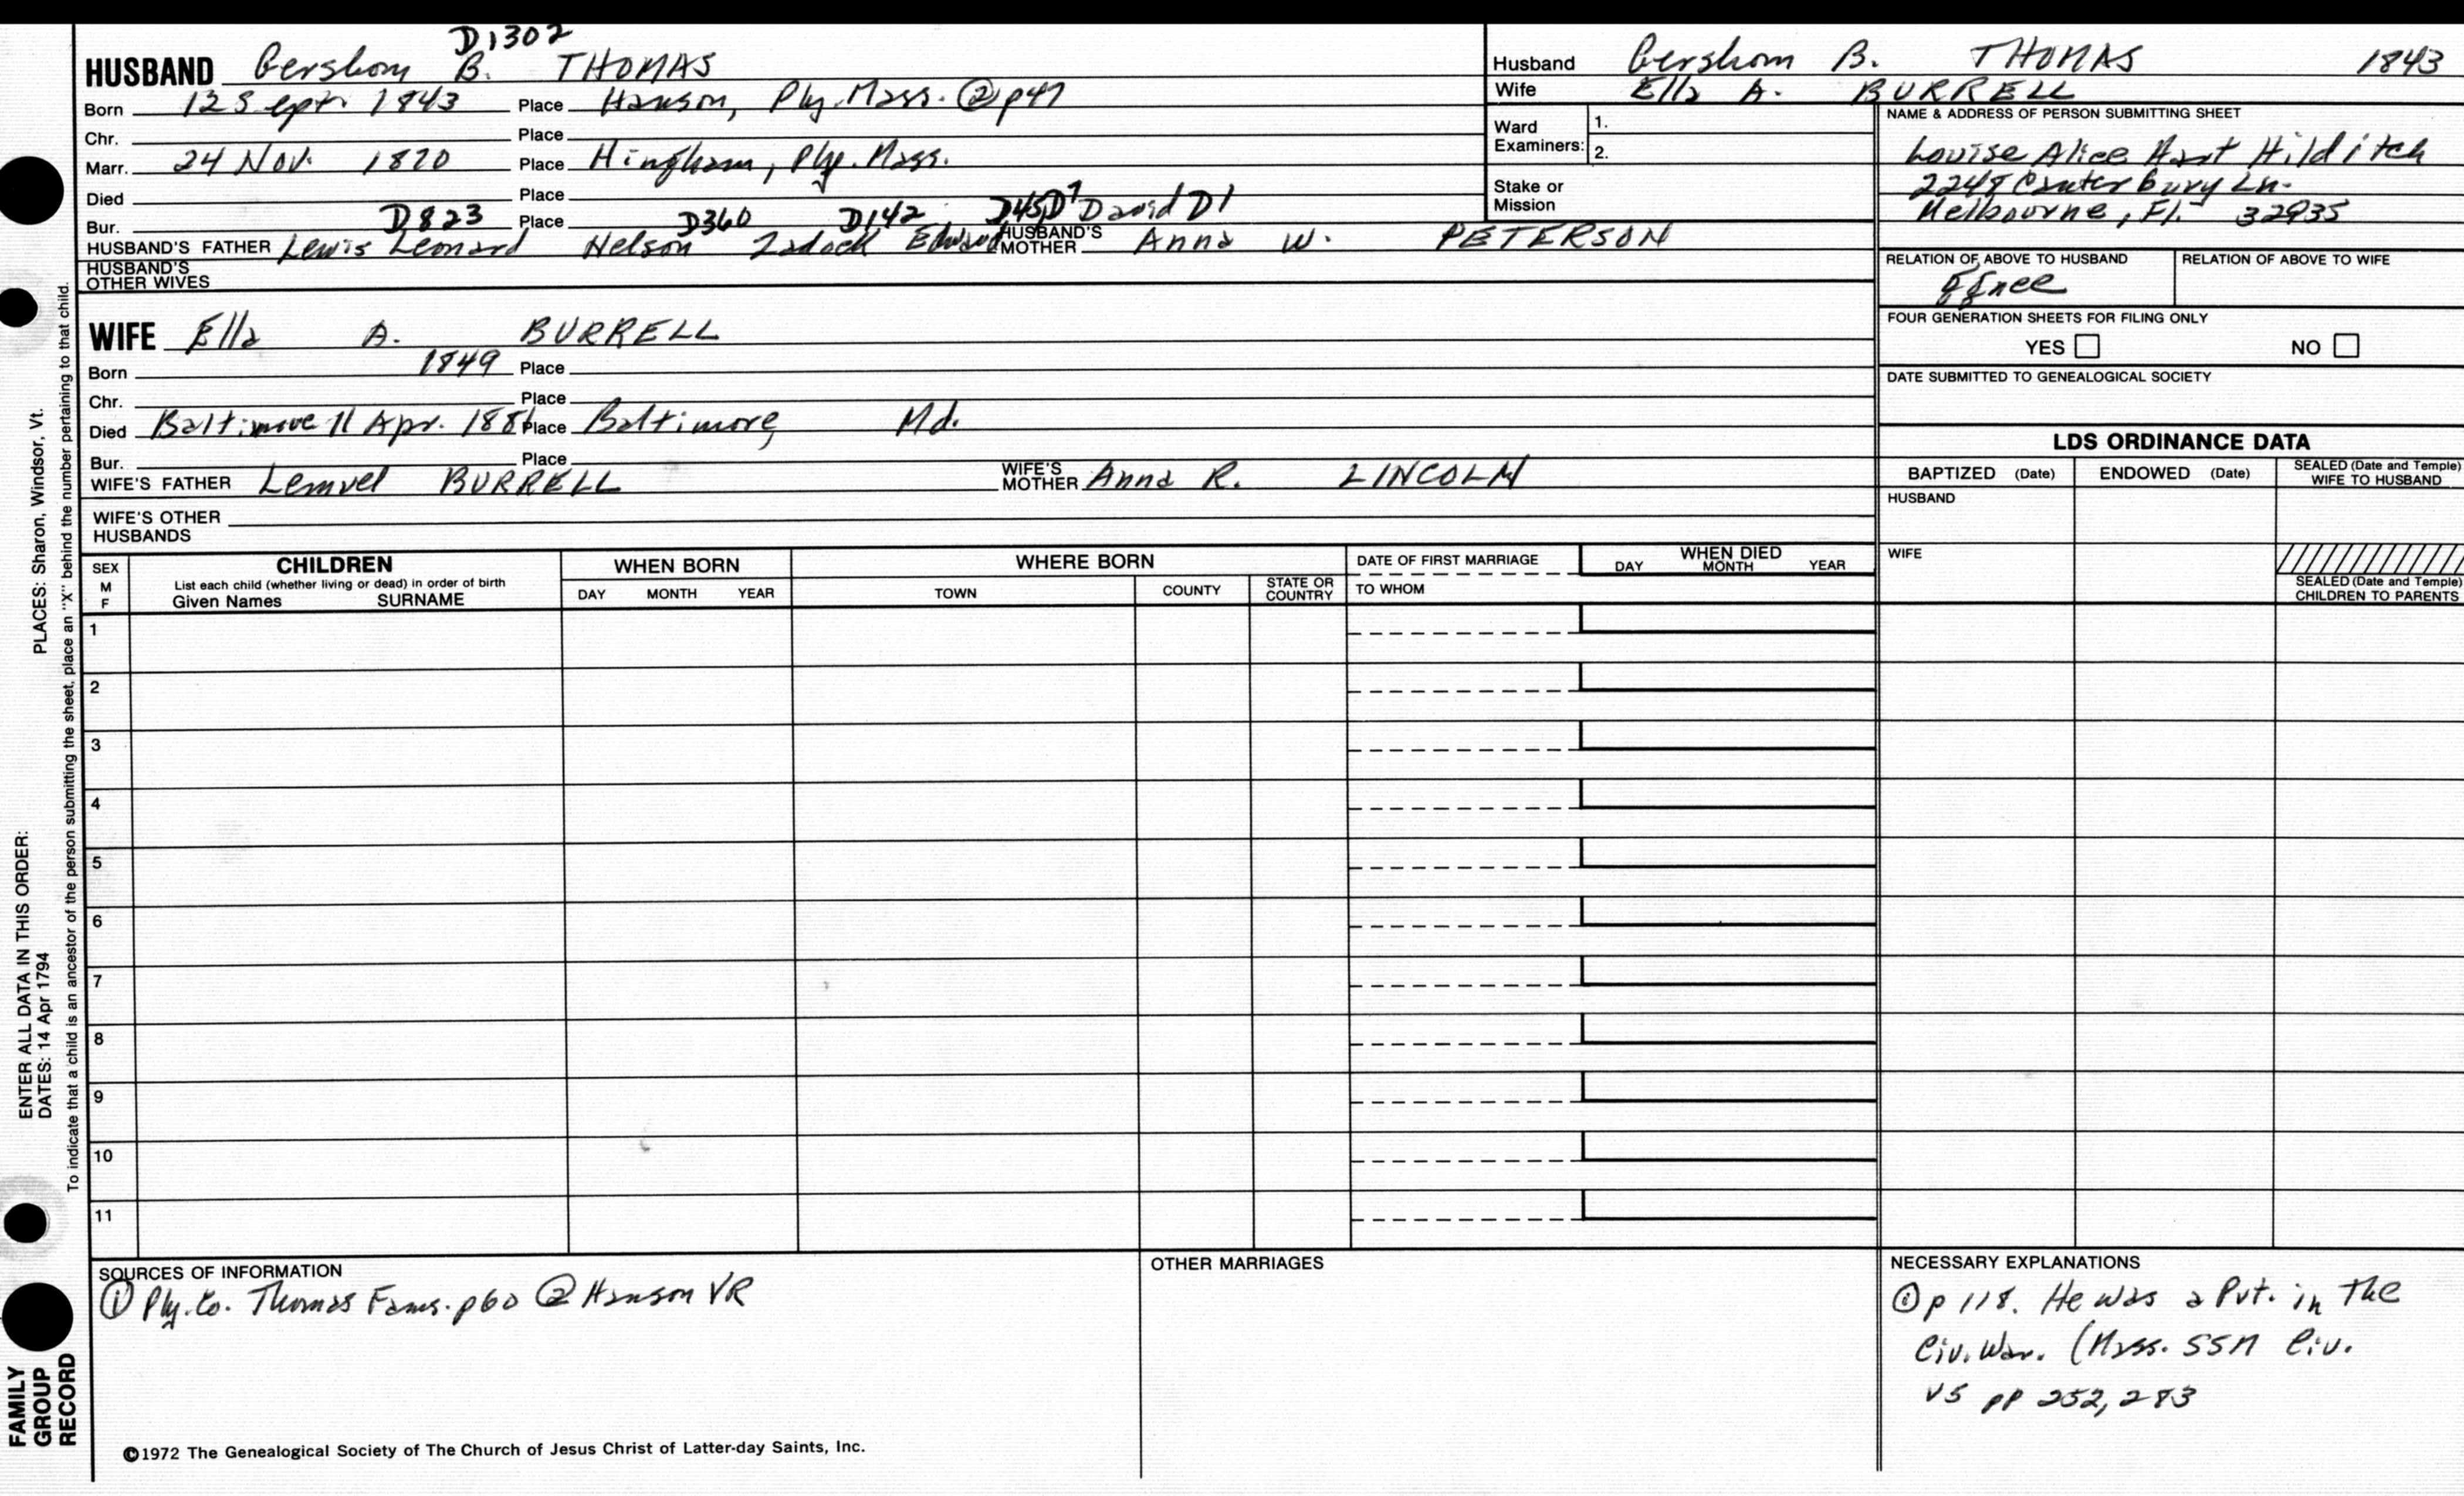 D1302
HUSBAND Gershom B. THOMAS
Born 12 Sept. 1843 Place Hanson, Ply. Mass. ② p47
Chr. Place
Marr. 24 Nov. 1870 Place Hingham, Ply. Mass.
Died Place
Bur. D823 Place D360 D142 D45 D7 David D1
HUSBAND'S FATHER Lewis Leonard Nelson Zadock Edward HUSBAND'S MOTHER Anna W. PETERSON
HUSBAND'S OTHER WIVES
WIFE Ella A. BURRELL
Born 1849 Place
Chr. Place
Died Baltimore 11 Apr. 1881 Place Baltimore, Md.
Bur. Place
WIFE'S FATHER Lemuel BURRELL WIFE'S MOTHER Anna R. LINCOLN
WIFE'S OTHER HUSBANDS
Husband Gershom B. THOMAS 1843
Wife Ella A. BURRELL
Ward Examiners: 1.
2.
Stake or Mission
NAME & ADDRESS OF PERSON SUBMITTING SHEET
Louise Alice Hart Hilditch
2248 Canterbury Ln.
Melbourne, Fl. 32935
RELATION OF ABOVE TO HUSBAND RELATION OF ABOVE TO WIFE
FOUR GENERATION SHEETS FOR FILING ONLY
YES NO
DATE SUBMITTED TO GENEALOGICAL SOCIETY
LDS ORDINANCE DATA
BAPTIZED (Date) ENDOWED (Date) SEALED (Date and Temple) WIFE TO HUSBAND
HUSBAND
WIFE
SEALED (Date and Temple) CHILDREN TO PARENTS
SEX M F
CHILDREN
List each child (whether living or dead) in order of birth
Given Names SURNAME
WHEN BORN
DAY MONTH YEAR
WHERE BORN
TOWN COUNTY STATE OR COUNTRY
DATE OF FIRST MARRIAGE
TO WHOM
WHEN DIED
DAY MONTH YEAR
1
2
3
4
5
6
7
8
9
10
11
SOURCES OF INFORMATION
① Ply. Co. Thomas Fams. p60 ② Hanson VR
OTHER MARRIAGES
NECESSARY EXPLANATIONS
① p 118. He was a Pvt. in The
Civ. War. (Mass. SSM Civ.
VS pp 252, 283
©1972 The Genealogical Society of The Church of Jesus Christ of Latter-day Saints, Inc.
FAMILY
GROUP
RECORD
ENTER ALL DATA IN THIS ORDER:
DATES: 14 Apr 1794
PLACES: Sharon, Windsor, Vt.
To indicate that a child is an ancestor of the person submitting the sheet, place an "X" behind the number pertaining to that child.